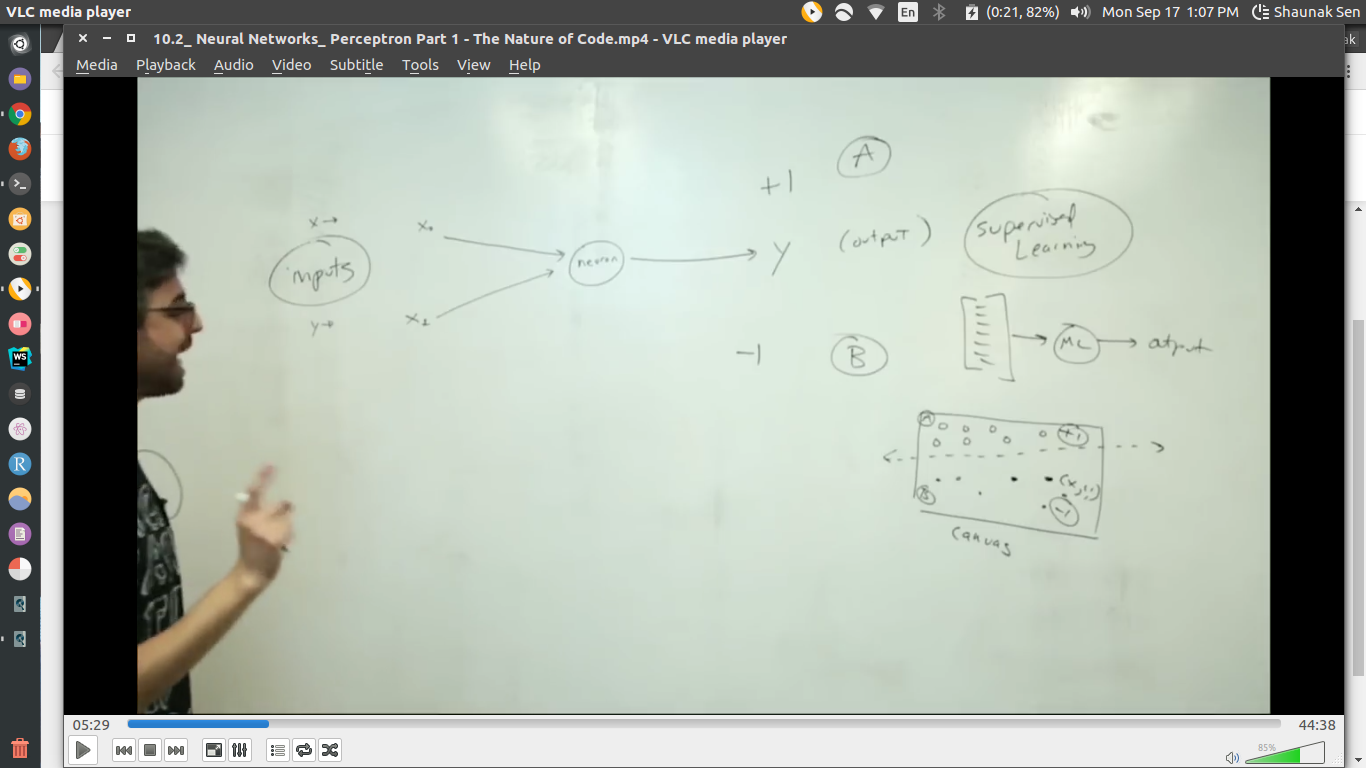 VLC media player
En
(0:21, 82%)
Mon Sep 17 1:07 PM
Shaunak Sen
10.2_ Neural Networks_ Perceptron Part 1 - The Nature of Code.mp4 - VLC media player
ak
Media Playback Audio Video Subtitle Tools View Help
A
+1
x→
x₀
supervised
Learning
(output)
inputs
neuron
y
y→
x₁
-1
B
ML
output
A
+1
B
(x,y)
-1
canvas
WS
R
05:29
44:38
85%